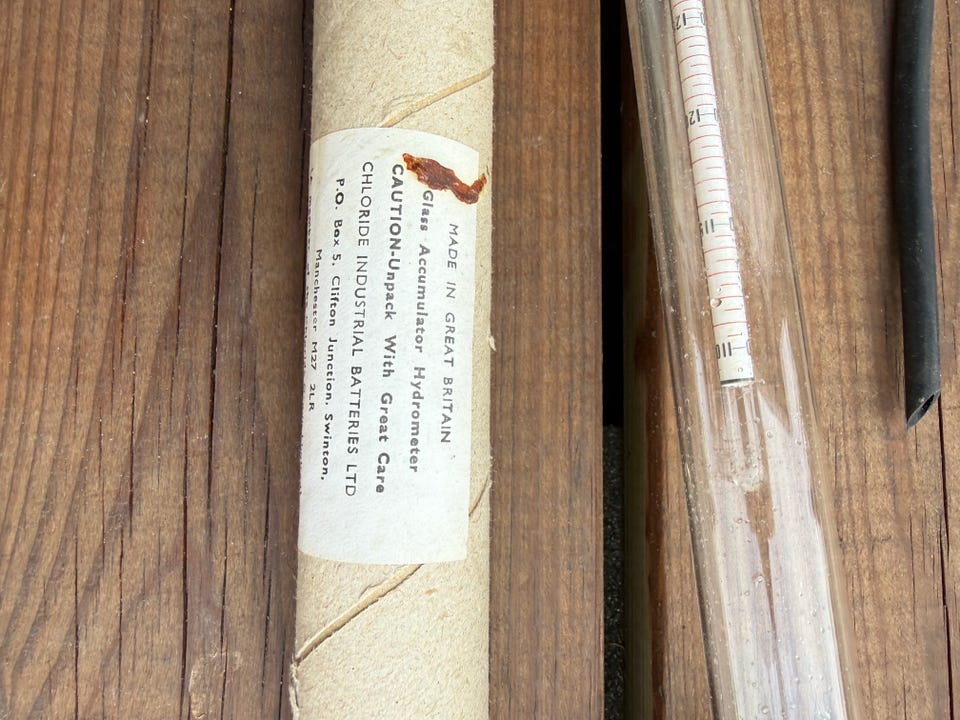 MADE IN GREAT BRITAIN
Glass Accumulator Hydrometer
CAUTION-Unpack With Great Care
CHLORIDE INDUSTRIAL BATTERIES LTD
P.O. Box 5, Clifton Junction, Swinton,
Manchester M27 2LR
12
115
110